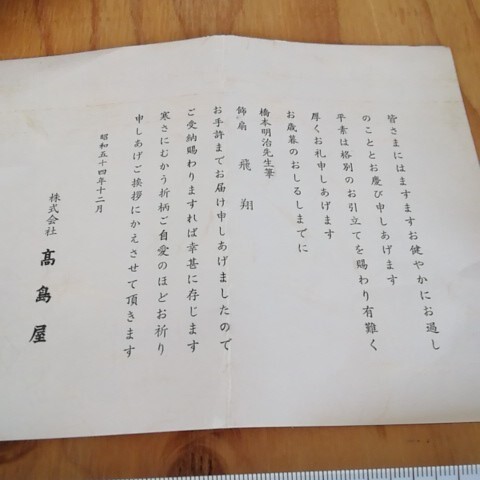 皆さまにはますますお健やかにお過し
のこととお慶び申しあげます
平素は格別のお引立てを賜わり有難く
厚くお礼申しあげます
お歳暮のおしるしまでに
橋本明治先生筆
飾扇 飛翔
お手許までお届け申しあげましたので
ご受納賜わりますれば幸甚に存じます
寒さにむかう折柄ご自愛のほどお祈り
申しあげご挨拶にかえさせて頂きます
昭和五十四年十二月
株式会社 髙島屋